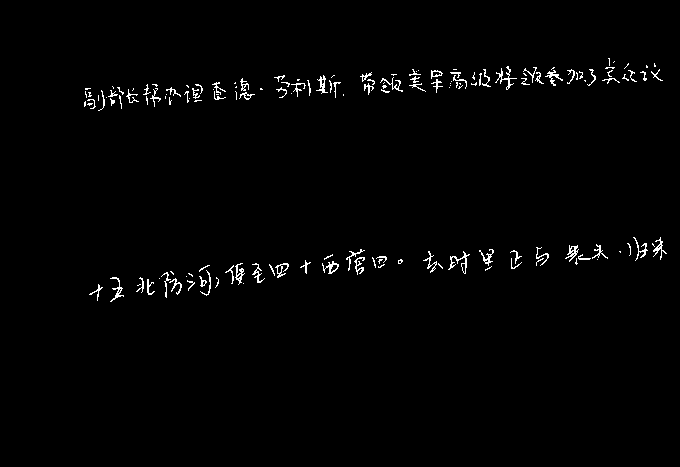 副部长帮办理查德·马利斯，带领美军高级将领参加了美众议
十五北防河，便至四十西营田。去时里正与裹头，归来